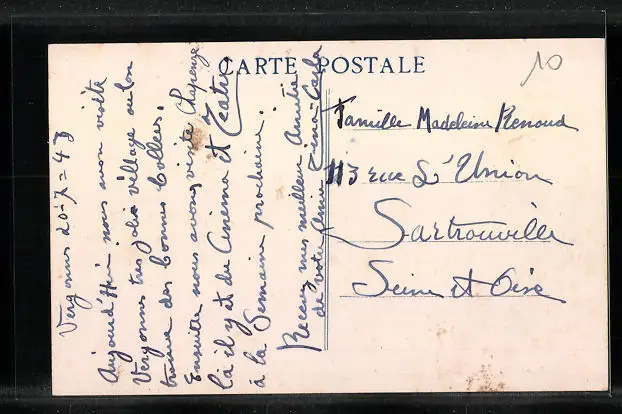 CARTE POSTALE
10
Vergonns 20-7=43
Aujourd'Hui nous avon visite
Vergonns tres jolie village ou lon
trouve des bonnes
Ensuite nous avons visite
là il y at du Cinéma et Teatre
à la Semaine prochaine.
Recevez mes meilleur Amitié
de votre Amie
Famille Madeleine Renoud
113 rue L'Union
Sartrouville
Seine et Oise